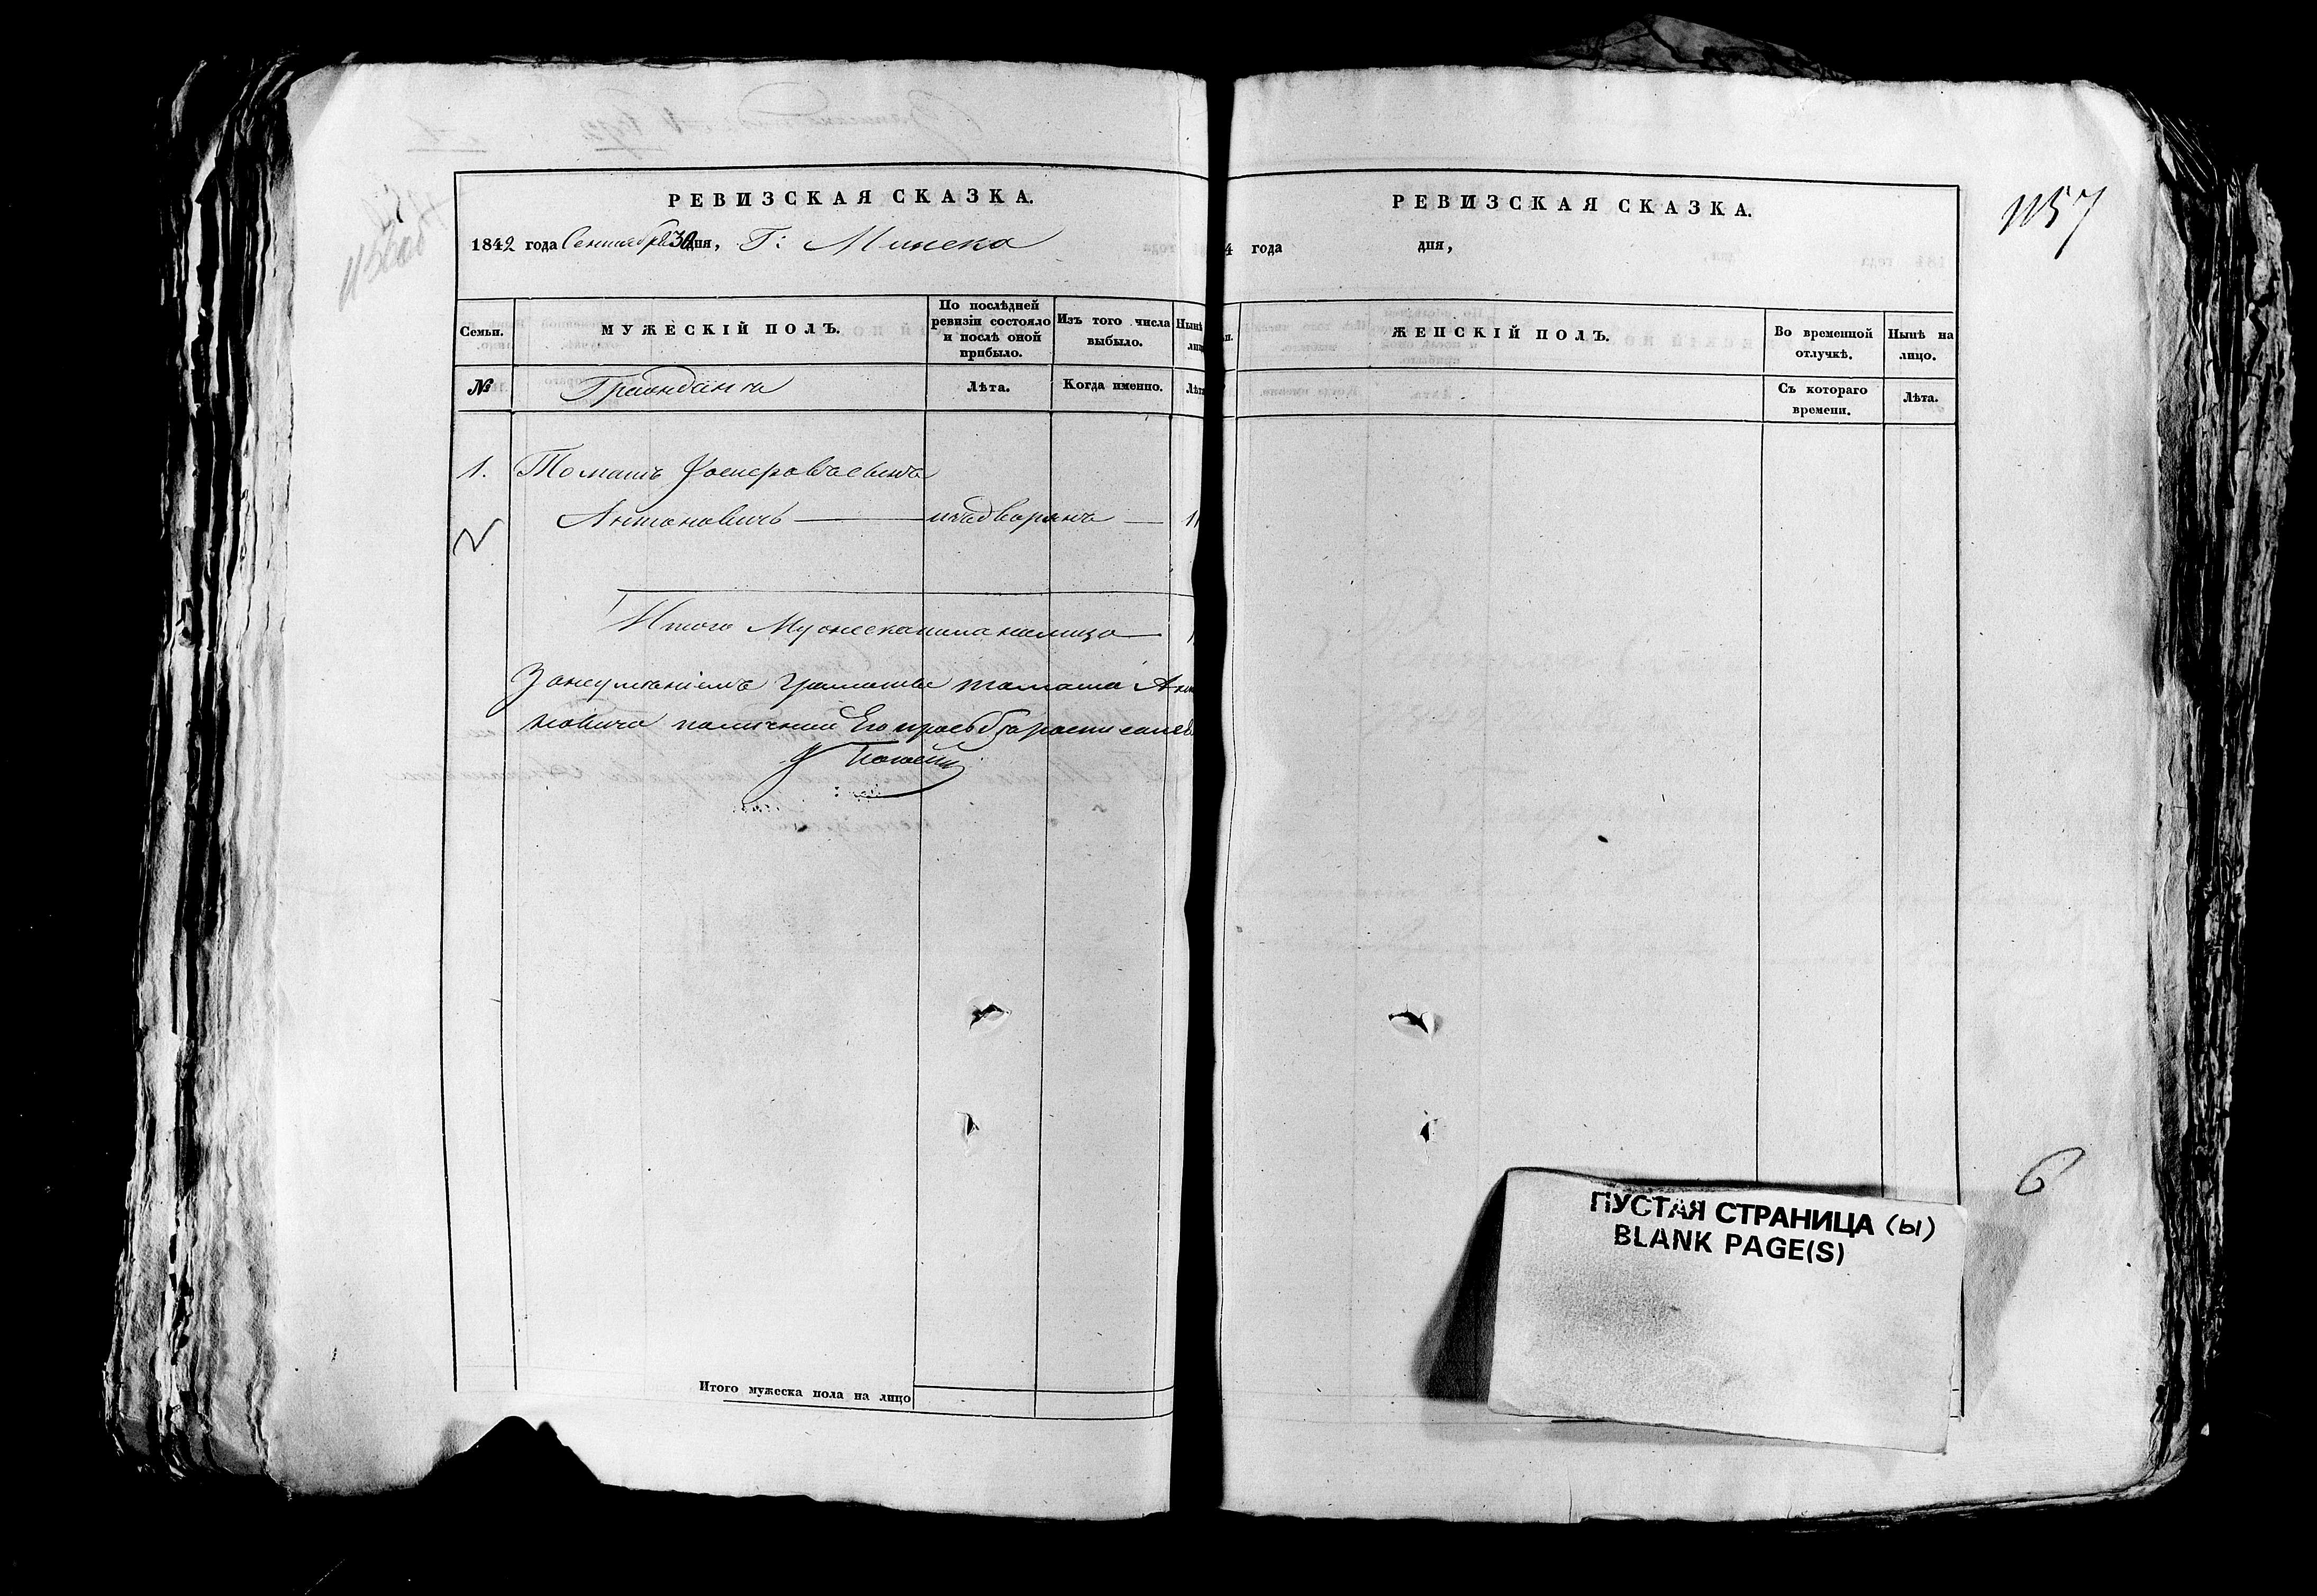 РЕВИЗСКАЯ СКАЗКА.
1842 года Сентября 30 дня, Г: Минска
Семьи.
МУЖЕСКІЙ ПОЛЪ.
По послѣдней ревизіи состояло и послѣ оной прибыло.
Изъ того числа выбыло.
Нынѣ
лиц
№
Гражданъ
Лѣта.
Когда именно.
Лѣт
1. Томашъ сынъ
Антоновичъ — изъ дворянъ — 1
Итого Мужеска пола налицо — 1
За неумѣніемъ грамоты Томаша Анто
новича по личной Его прозьбѣ росписался
Итого мужеска пола на лицо
РЕВИЗСКАЯ СКАЗКА.
1157
4 года дня,
ЖЕНСКІЙ ПОЛЪ.
Во временной отлучкѣ.
Нынѣ на лицо.
Съ котораго времени.
Лѣта.
6
ПУСТАЯ СТРАНИЦА (Ы)
BLANK PAGE(S)